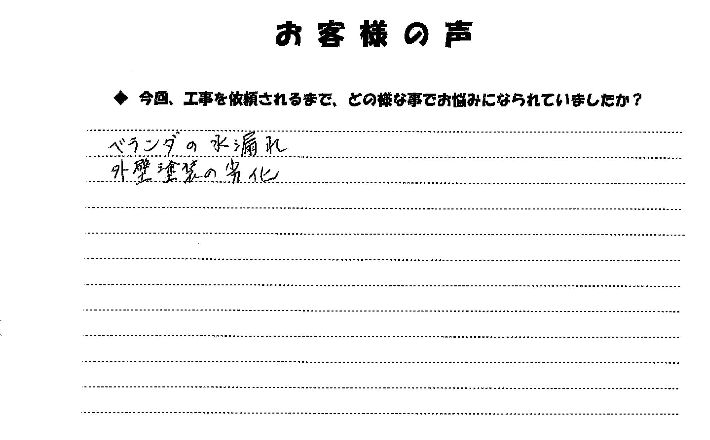 お客様の声
◆ 今回、工事を依頼されるまで、どの様な事でお悩みになられていましたか？
ベランダの水漏れ
外壁塗装の劣化